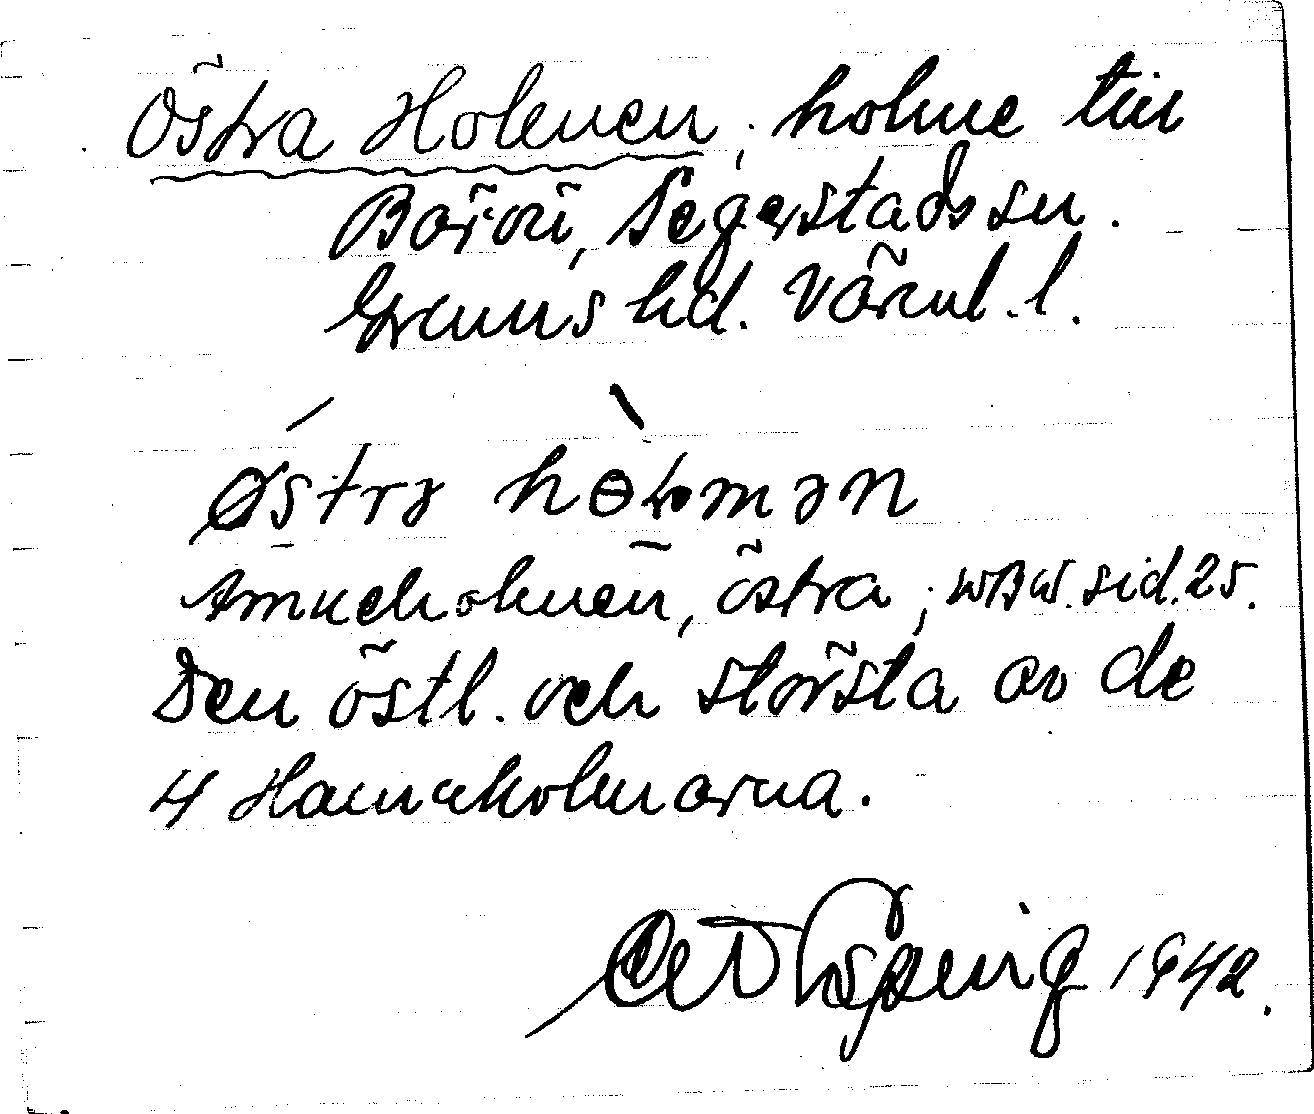 Östra Holmen, holme till
Börön, Segerstads sn.
Grums hd. Värml. l.
Östra
Amneholmen, östra; WBW. sid. 25.
Den östl. och största av de
4 Hamnholmarna.
1942.